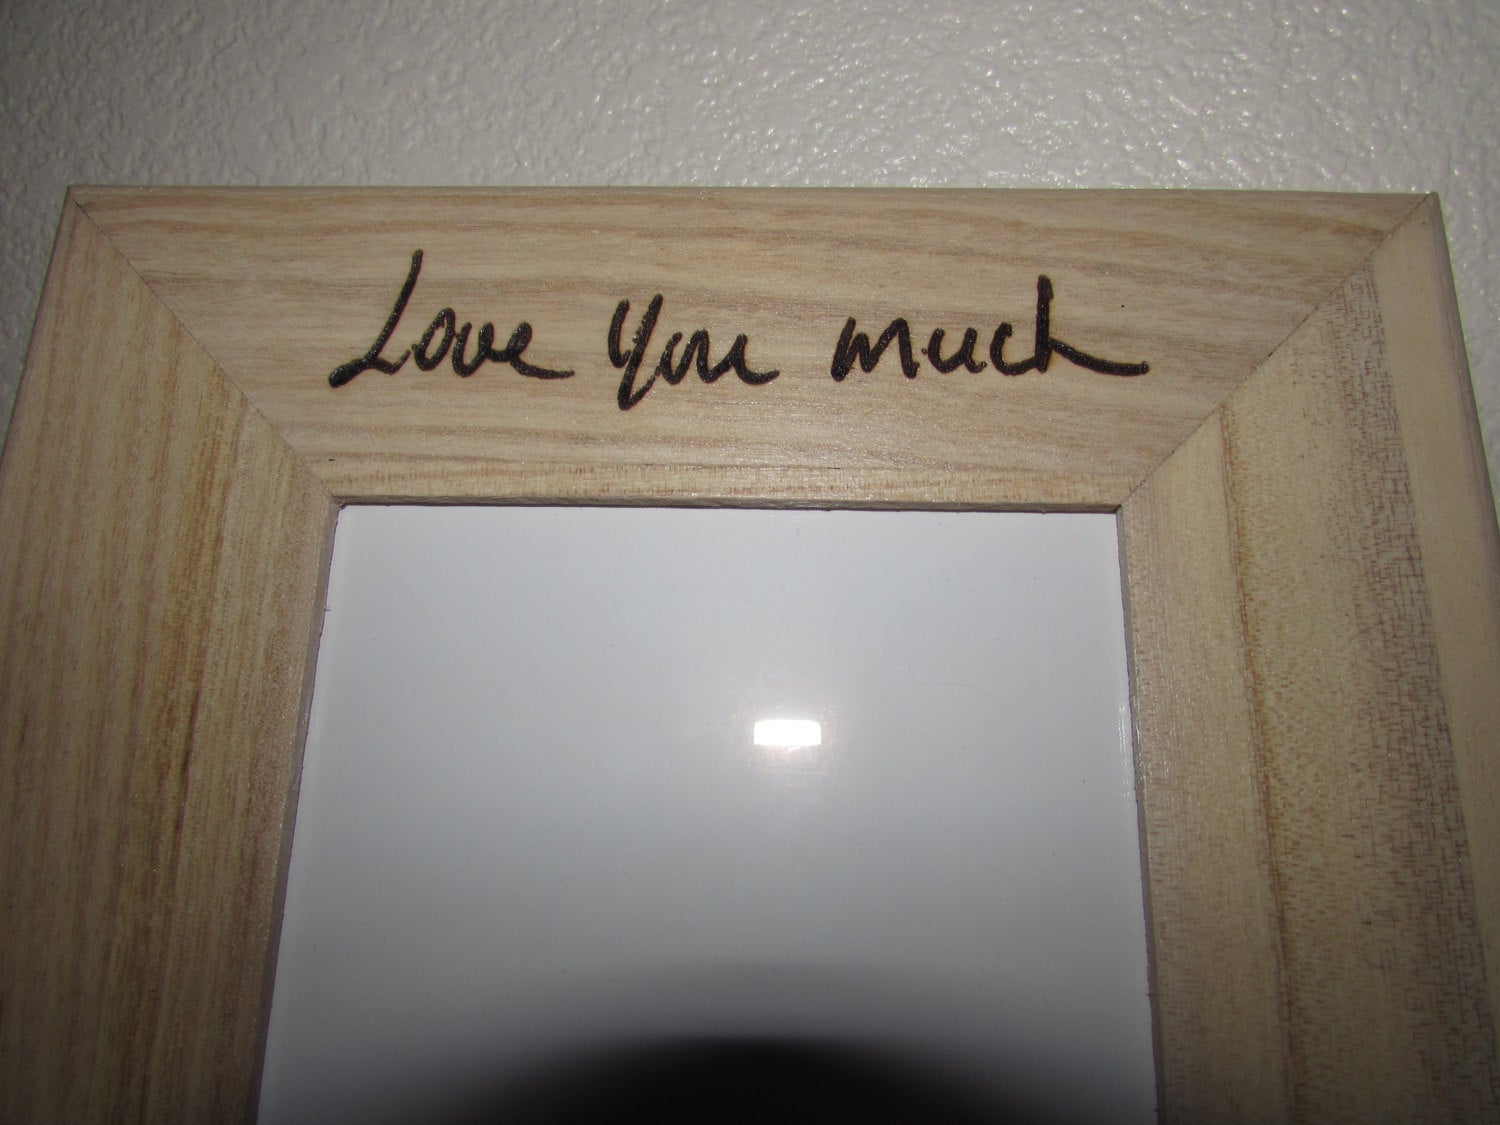 Love You much